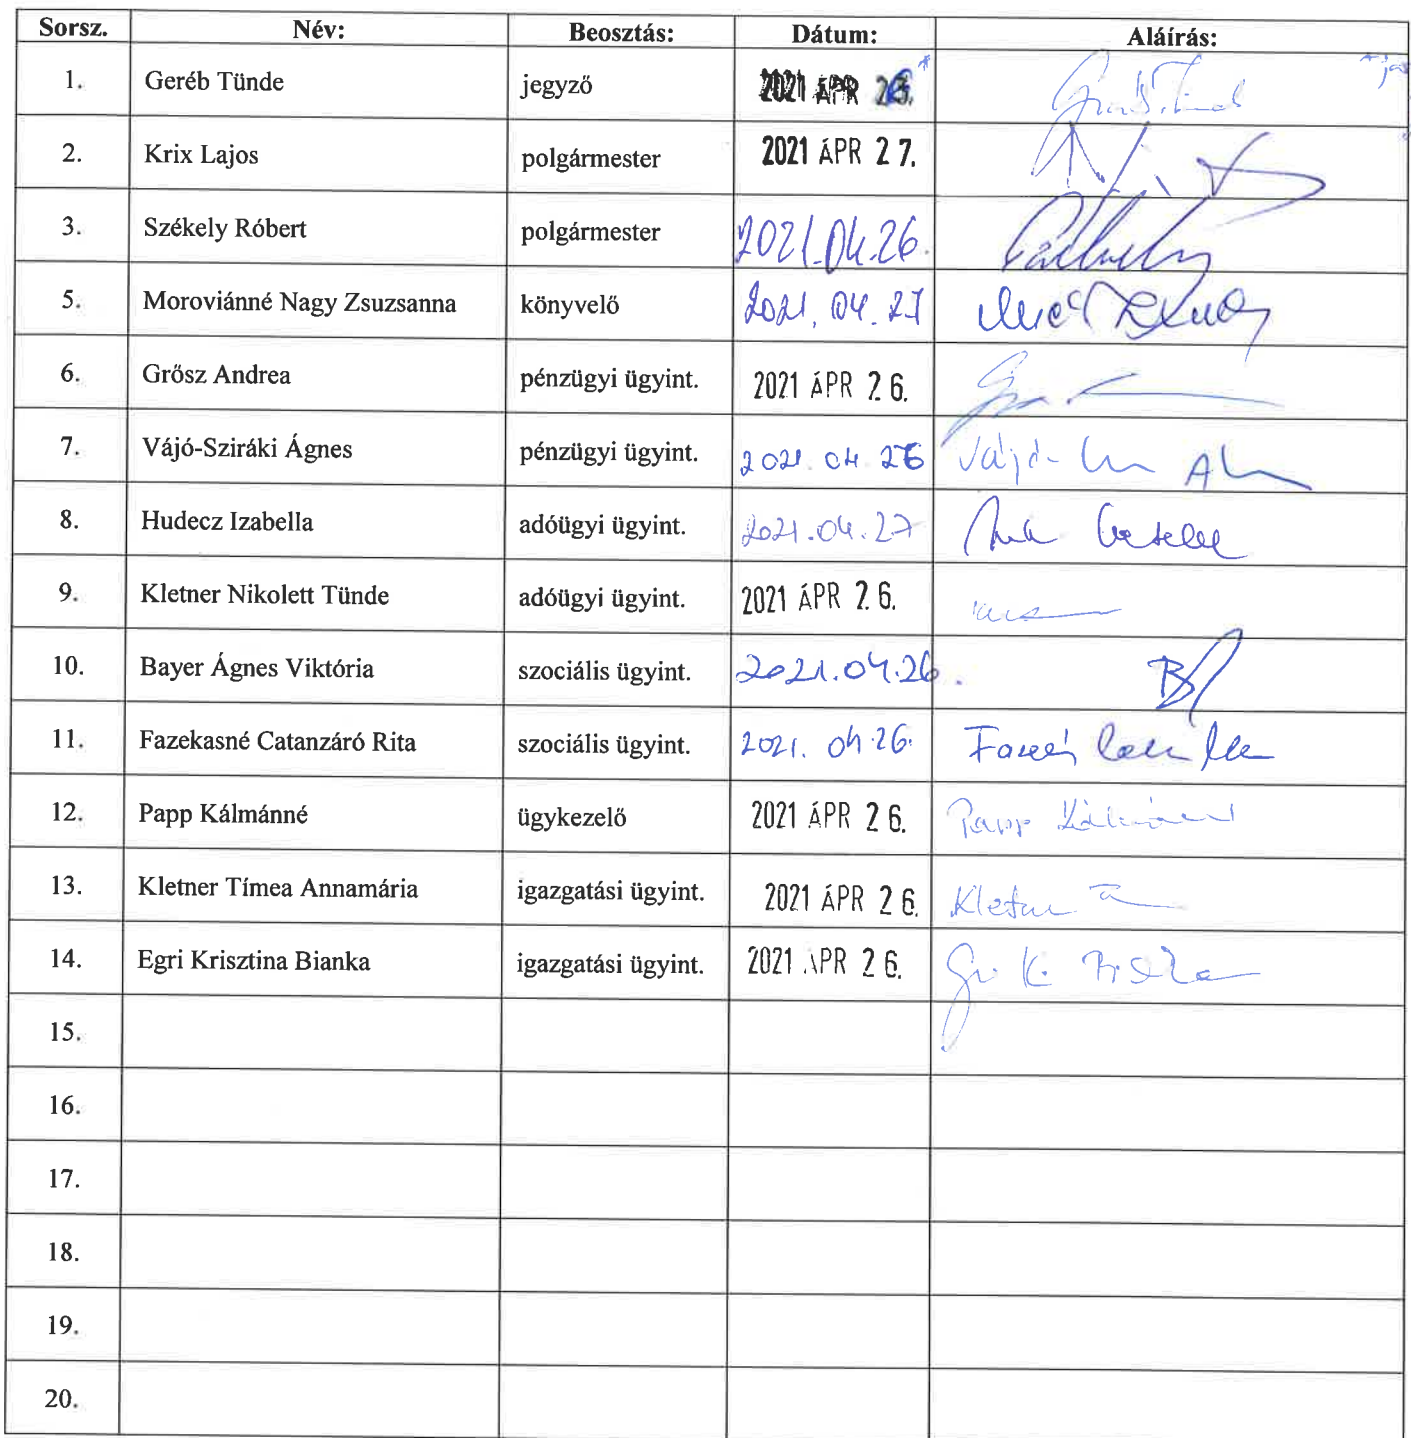 Sorsz. Név: Beosztás: Dátum: Aláírás:
1. Geréb Tünde jegyző 2021 ÁPR 26.*
2. Krix Lajos polgármester 2021 ÁPR 27.
3. Székely Róbert polgármester 2021.04.26.
5. Moroviánné Nagy Zsuzsanna könyvelő 2021. 04. 27
6. Grősz Andrea pénzügyi ügyint. 2021 ÁPR 26.
7. Vájó-Sziráki Ágnes pénzügyi ügyint. 2021 04 26
8. Hudecz Izabella adóügyi ügyint. 2021.04.27
9. Kletner Nikolett Tünde adóügyi ügyint. 2021 ÁPR 26.
10. Bayer Ágnes Viktória szociális ügyint. 2021.04.26.
11. Fazekasné Catanzáró Rita szociális ügyint. 2021. 04.26.
12. Papp Kálmánné ügykezelő 2021 ÁPR 26. Papp Kálmánné
13. Kletner Tímea Annamária igazgatási ügyint. 2021 ÁPR 26. Kletner T
14. Egri Krisztina Bianka igazgatási ügyint. 2021 ÁPR 26.
15.
16.
17.
18.
19.
20.